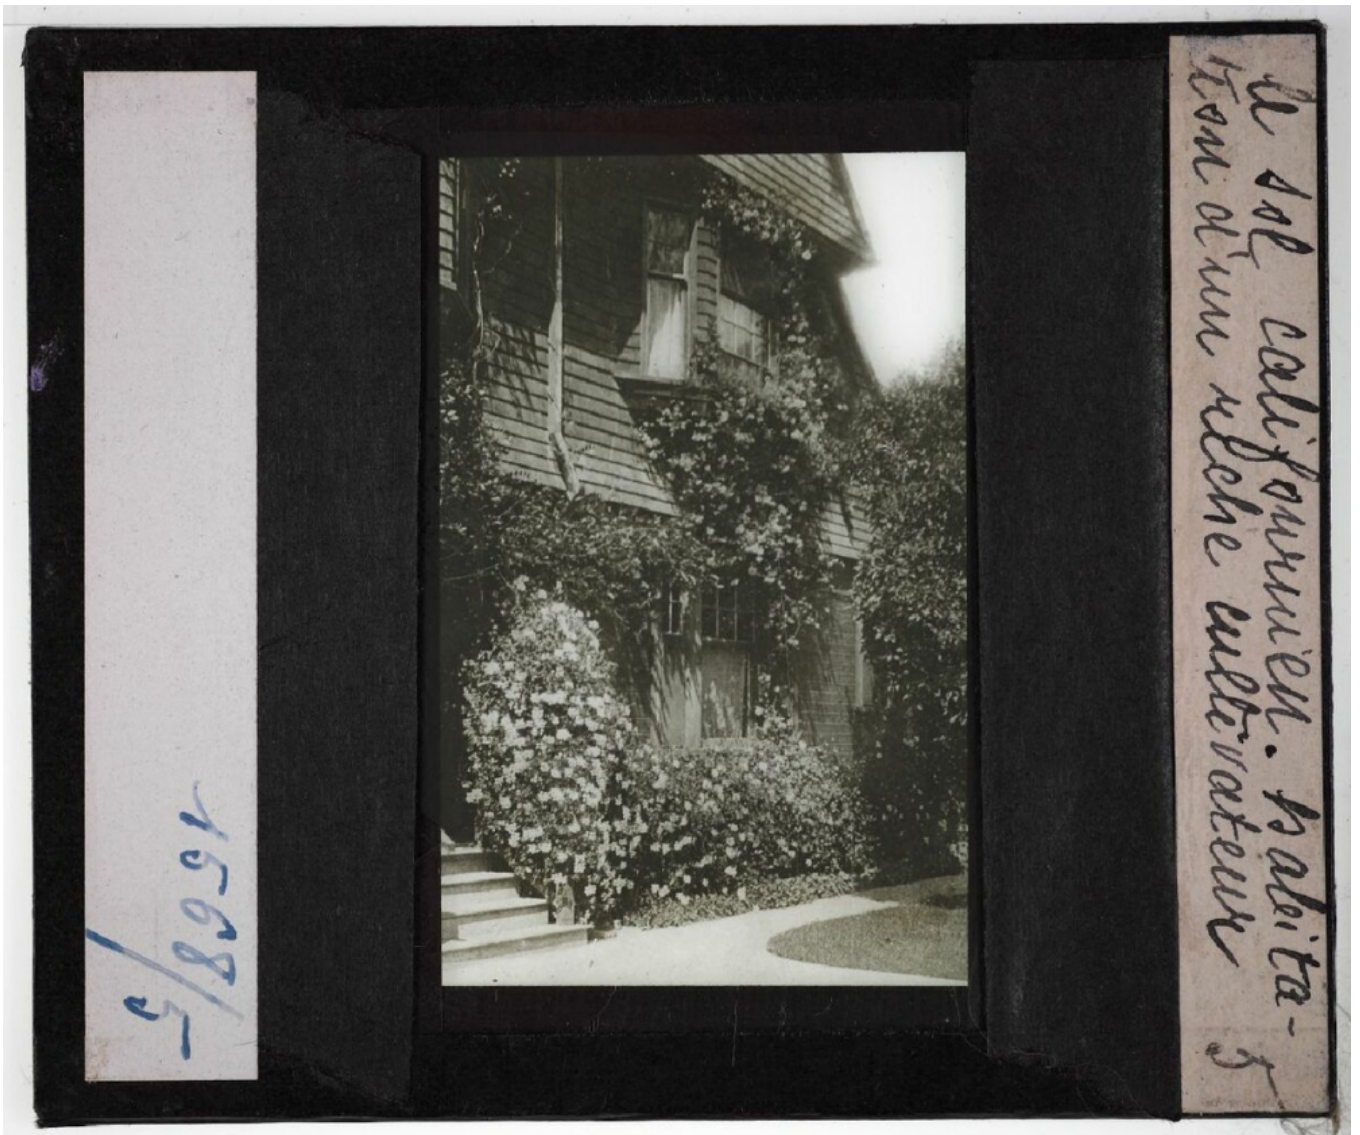 Le sol californien. Habita-
tion d'un riche cultivateur
5
15568
/5